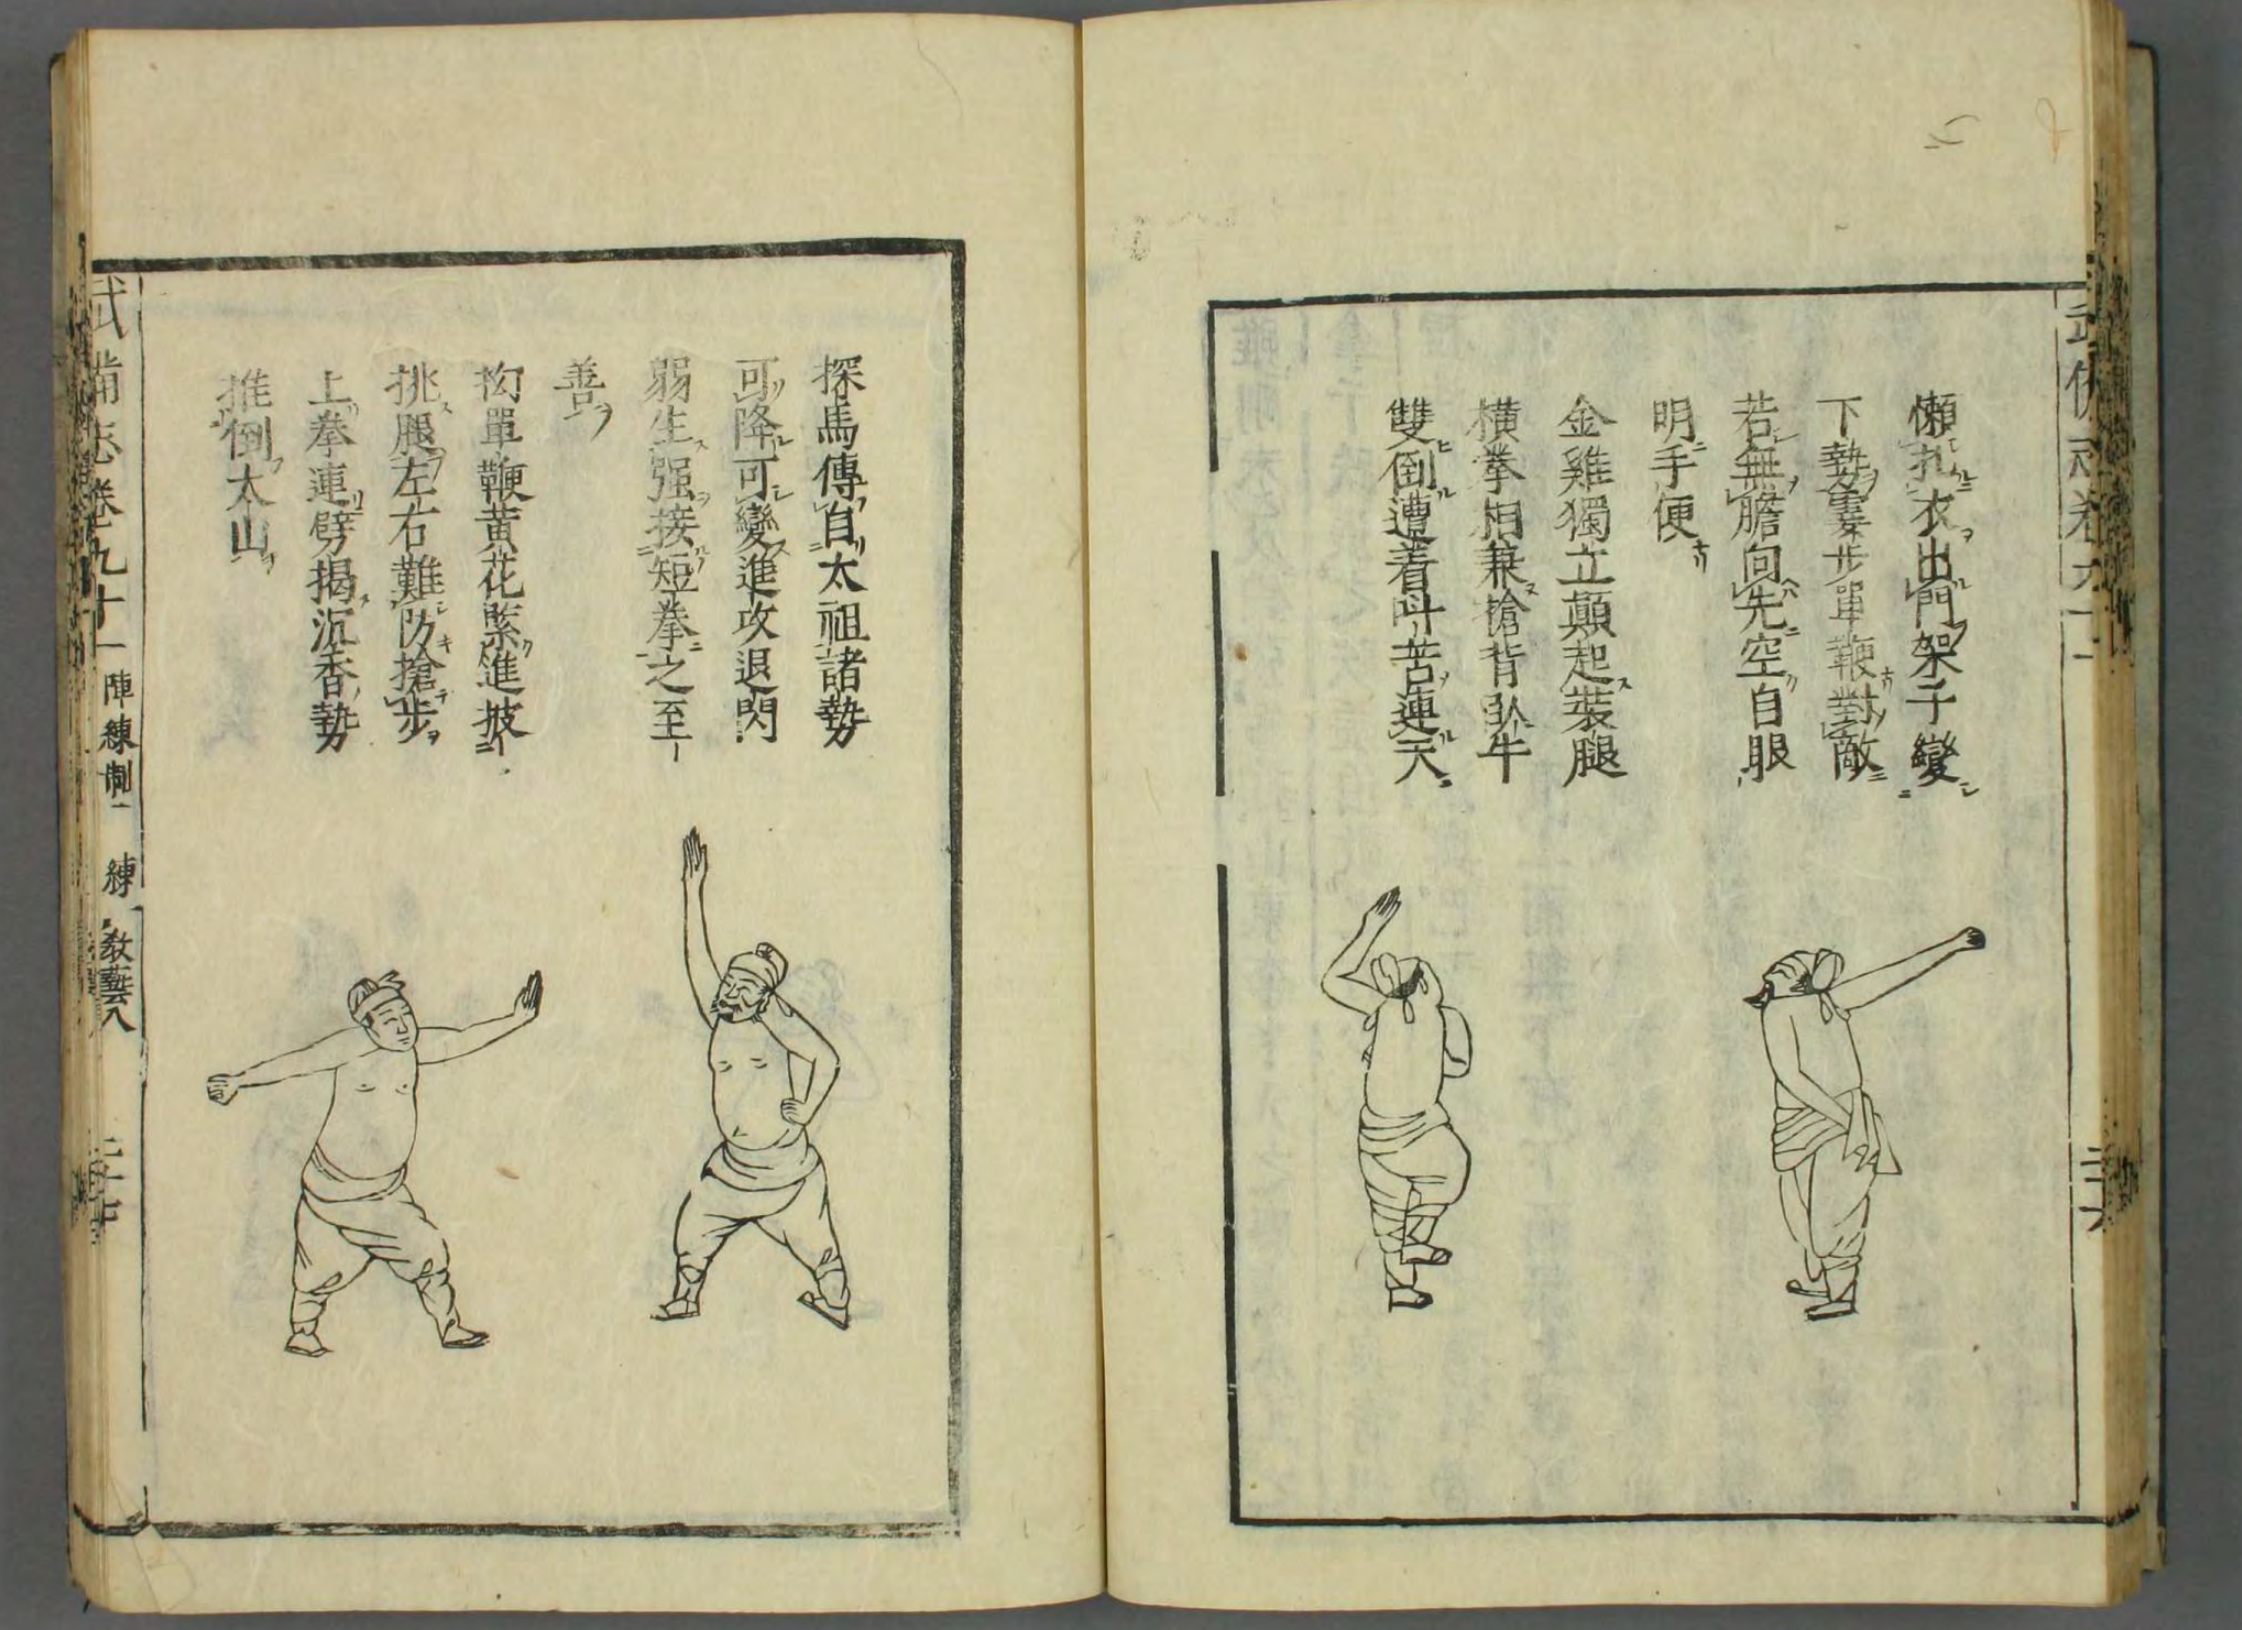 懶扎衣出門架子變
下勢霎步單鞭對敵
若無膽向先空自眼
明手便
金雞獨立顛起裝腿
橫拳相兼搶背臥牛
雙倒遭着叫苦連天
探馬傳自太祖諸勢
可降可變進攻退閃
弱生强接短拳之至
善
拗單鞭黃花緊進披
挑腿左右難防搶步
上拳連劈揭沉香勢
推倒太山
武備志卷九十一 陣練制 練 教藝八 二十七